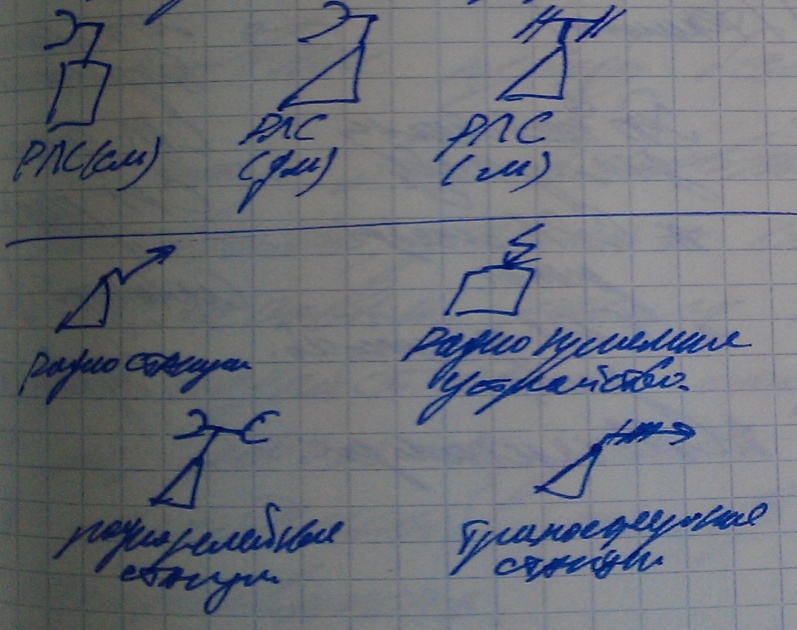 РЛС(см)
РЛС
(дм)
РЛС
(м)
радиостанция
Радиоприемные
устройство.
радиорелейные
станции
Тропосферные
станции